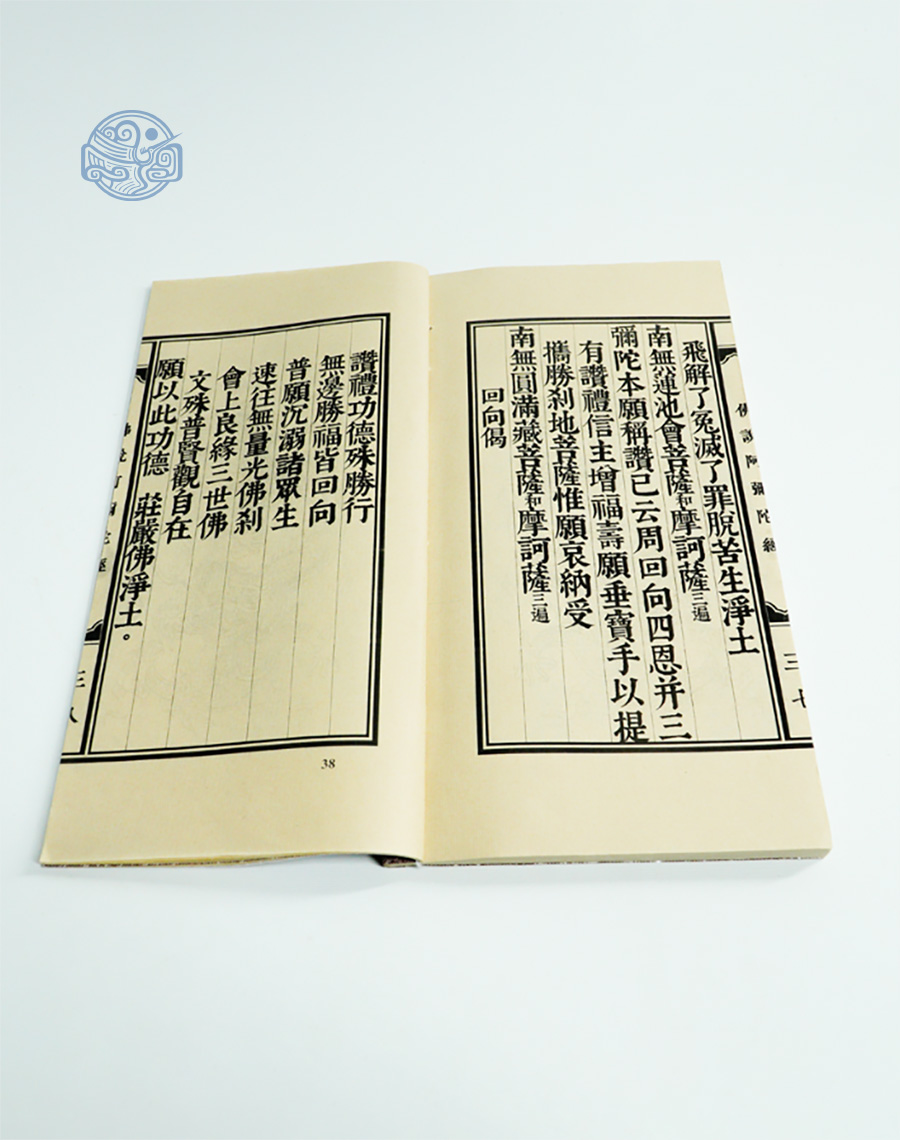 佛說阿彌陀經
三七
飛解了冤滅了罪脫苦生淨土
南無蓮池會菩薩和摩訶薩三遍
彌陀本願稱讚已云周回向四恩并三
有讚禮信主增福壽願垂寶手以提
攜勝刹地菩薩惟願哀納受
南無圓滿藏菩薩和摩訶薩三遍
回向偈
讚禮功德殊勝行
無邊勝福皆回向
普願沉溺諸眾生
速往無量光佛刹
會上良緣三世佛
文殊普賢觀自在
願以此功德 莊嚴佛淨土。
三八
38